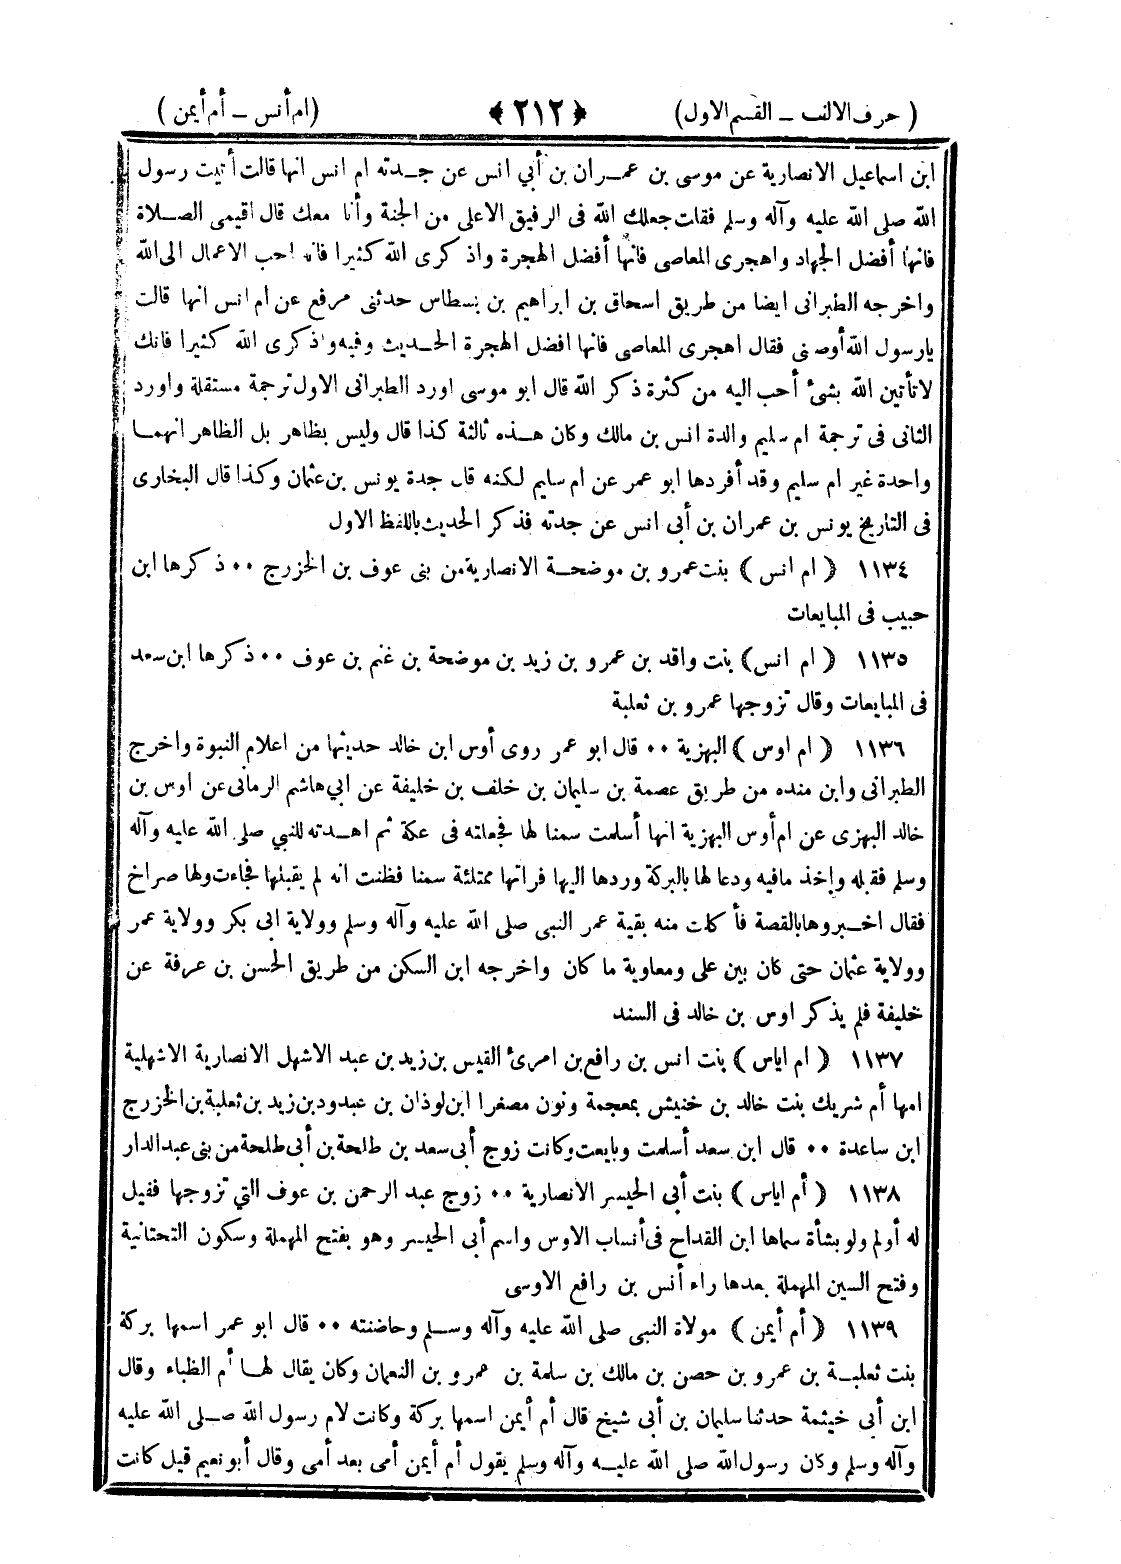 ( حرف الالف – القسم الاول) ﴿ ٢١٢ ﴾ (ام أنس – أم أيمن )
ابن اسماعيل الانصارية عن موسى بن عمـران بن أبي انس عن جـدته ام انس انها قالت أتيت رسول
الله صلى الله عليه وآله وسلم فقلت جعلك الله فى الرفيق الاعلى من الجنة وأنا معك قال اقيمى الصـلاة
فانها أفضل الجهاد واهجرى المعاصى فانها أفضل الهجرة واذ كرى الله كثيرا فانه احب الاعمال الى الله
واخرجه الطبرانى ايضا من طريق اسحاق بن ابراهيم بن بسطاس حدثنى مرفع عن ام انس انها قالت
يارسول الله أوصنى فقال اهجرى المعاصى فانها افضل الهجرة الحـديث وفيه واذ كرى الله كثيرا فانك
لاتأتين الله بشئ أحب اليه من كثرة ذكر الله قال ابو موسى اورد الطبرانى الاول ترجمة مستقلة واورد
الثانى فى ترجمة ام سليم والدة انس بن مالك وكان هـذه ثالثة كذا قال وليس بظاهر بل الظاهر انهمـا
واحدة غير ام سليم وقد أفردها ابو عمر عن ام سليم لكنه قال جدة يونس بن عثمان وكذا قال البخارى
فى التاريخ يونس بن عمران بن أبى انس عن جدته فذكر الحديث باللفظ الاول
١١٣٤ ( ام انس ) بنت عمرو بن موضحـة الانصارية من بنى عوف بن الخزرج ٠٠ ذكرها ابن
حبيب فى المبايعات
١١٣٥ ( ام انس) بنت واقد بن عمرو بن زيد بن موضحة بن غنم بن عوف ٠٠ ذكرها ابن سعد
فى المبايعات وقال تزوجها عمرو بن ثعلبة
١١٣٦ ( ام اوس ) البهزية ٠٠ قال ابو عمر روى أوس ابن خالد حديثها من اعلام النبوة واخرج
الطبرانى وابن منده من طريق عصمة بن سليمان بن خلف بن خليفة عن ابي هاشم الرمانى عن اوس بن
خالد البهزى عن ام أوس البهزية انها أسلمت سمنا لها فجعلته فى عكة ثم اهـدته للنبي صلى الله عليه وآله
وسلم فقبله وأخذ مافيه ودعا لها بالبركة وردها اليها فرأتها ممتلئة سمنا فظنت انه لم يقبلها فجاءت ولها صراخ
فقال اخـبروها بالقصة فأ كلت منه بقية عمر النبى صلى الله عليه وآله وسلم وولاية ابى بكر وولاية عمر
وولاية عثمان حتى كان بين على ومعاوية ما كان واخرجه ابن السكن من طريق الحسن بن عرفة عن
خليفة فلم يذكر اوس بن خالد فى السند
١١٣٧ ( ام اياس ) بنت انس بن رافع بن امرئ القيس بن زيد بن عبد الاشهل الانصارية الاشهلية
امها أم شريك بنت خالد بن خنيش بمعجمة ونون مصغرا ابن لوذان بن عبدود بن زيد بن ثعلبة بن الخزرج
ابن ساعدة ٠٠ قال ابن سعد أسلمت وبايعت وكانت زوج أبى سعد بن طلحة بن أبى طلحة من بنى عبد الدار
١١٣٨ ( أم اياس ) بنت أبى الحيسر الانصارية ٠٠ زوج عبد الرحمن بن عوف التي تزوجها فقيل
له أولم ولو بشأة سماها ابن القداح فى أنساب الاوس واسم أبى الحيسر وهو بفتح المهملة وسكون التحتانية
وفتح السين المهملة بعدها راء أنس بن رافع الاوسى
١١٣٩ ( أم أيمن ) مولاة النبى صلى الله عليه وآله وسـلم وحاضنته ٠٠ قال ابو عمر اسمها بركة
بنت ثعلبـة بن عمرو بن حصن بن مالك بن سلمة بن عمرو بن النعمان وكان يقال لهـا أم الظباء وقال
ابن أبى خيثمة حدثنا سليمان بن أبى شيخ قال أم أيمن اسمها بركة وكانت لام رسول الله صـلى الله عليه
وآله وسلم وكان رسول الله صلى الله عليـه وآله وسلم يقول أم أيمن أمى بعد أمى وقال أبو نعيم قيل كانت